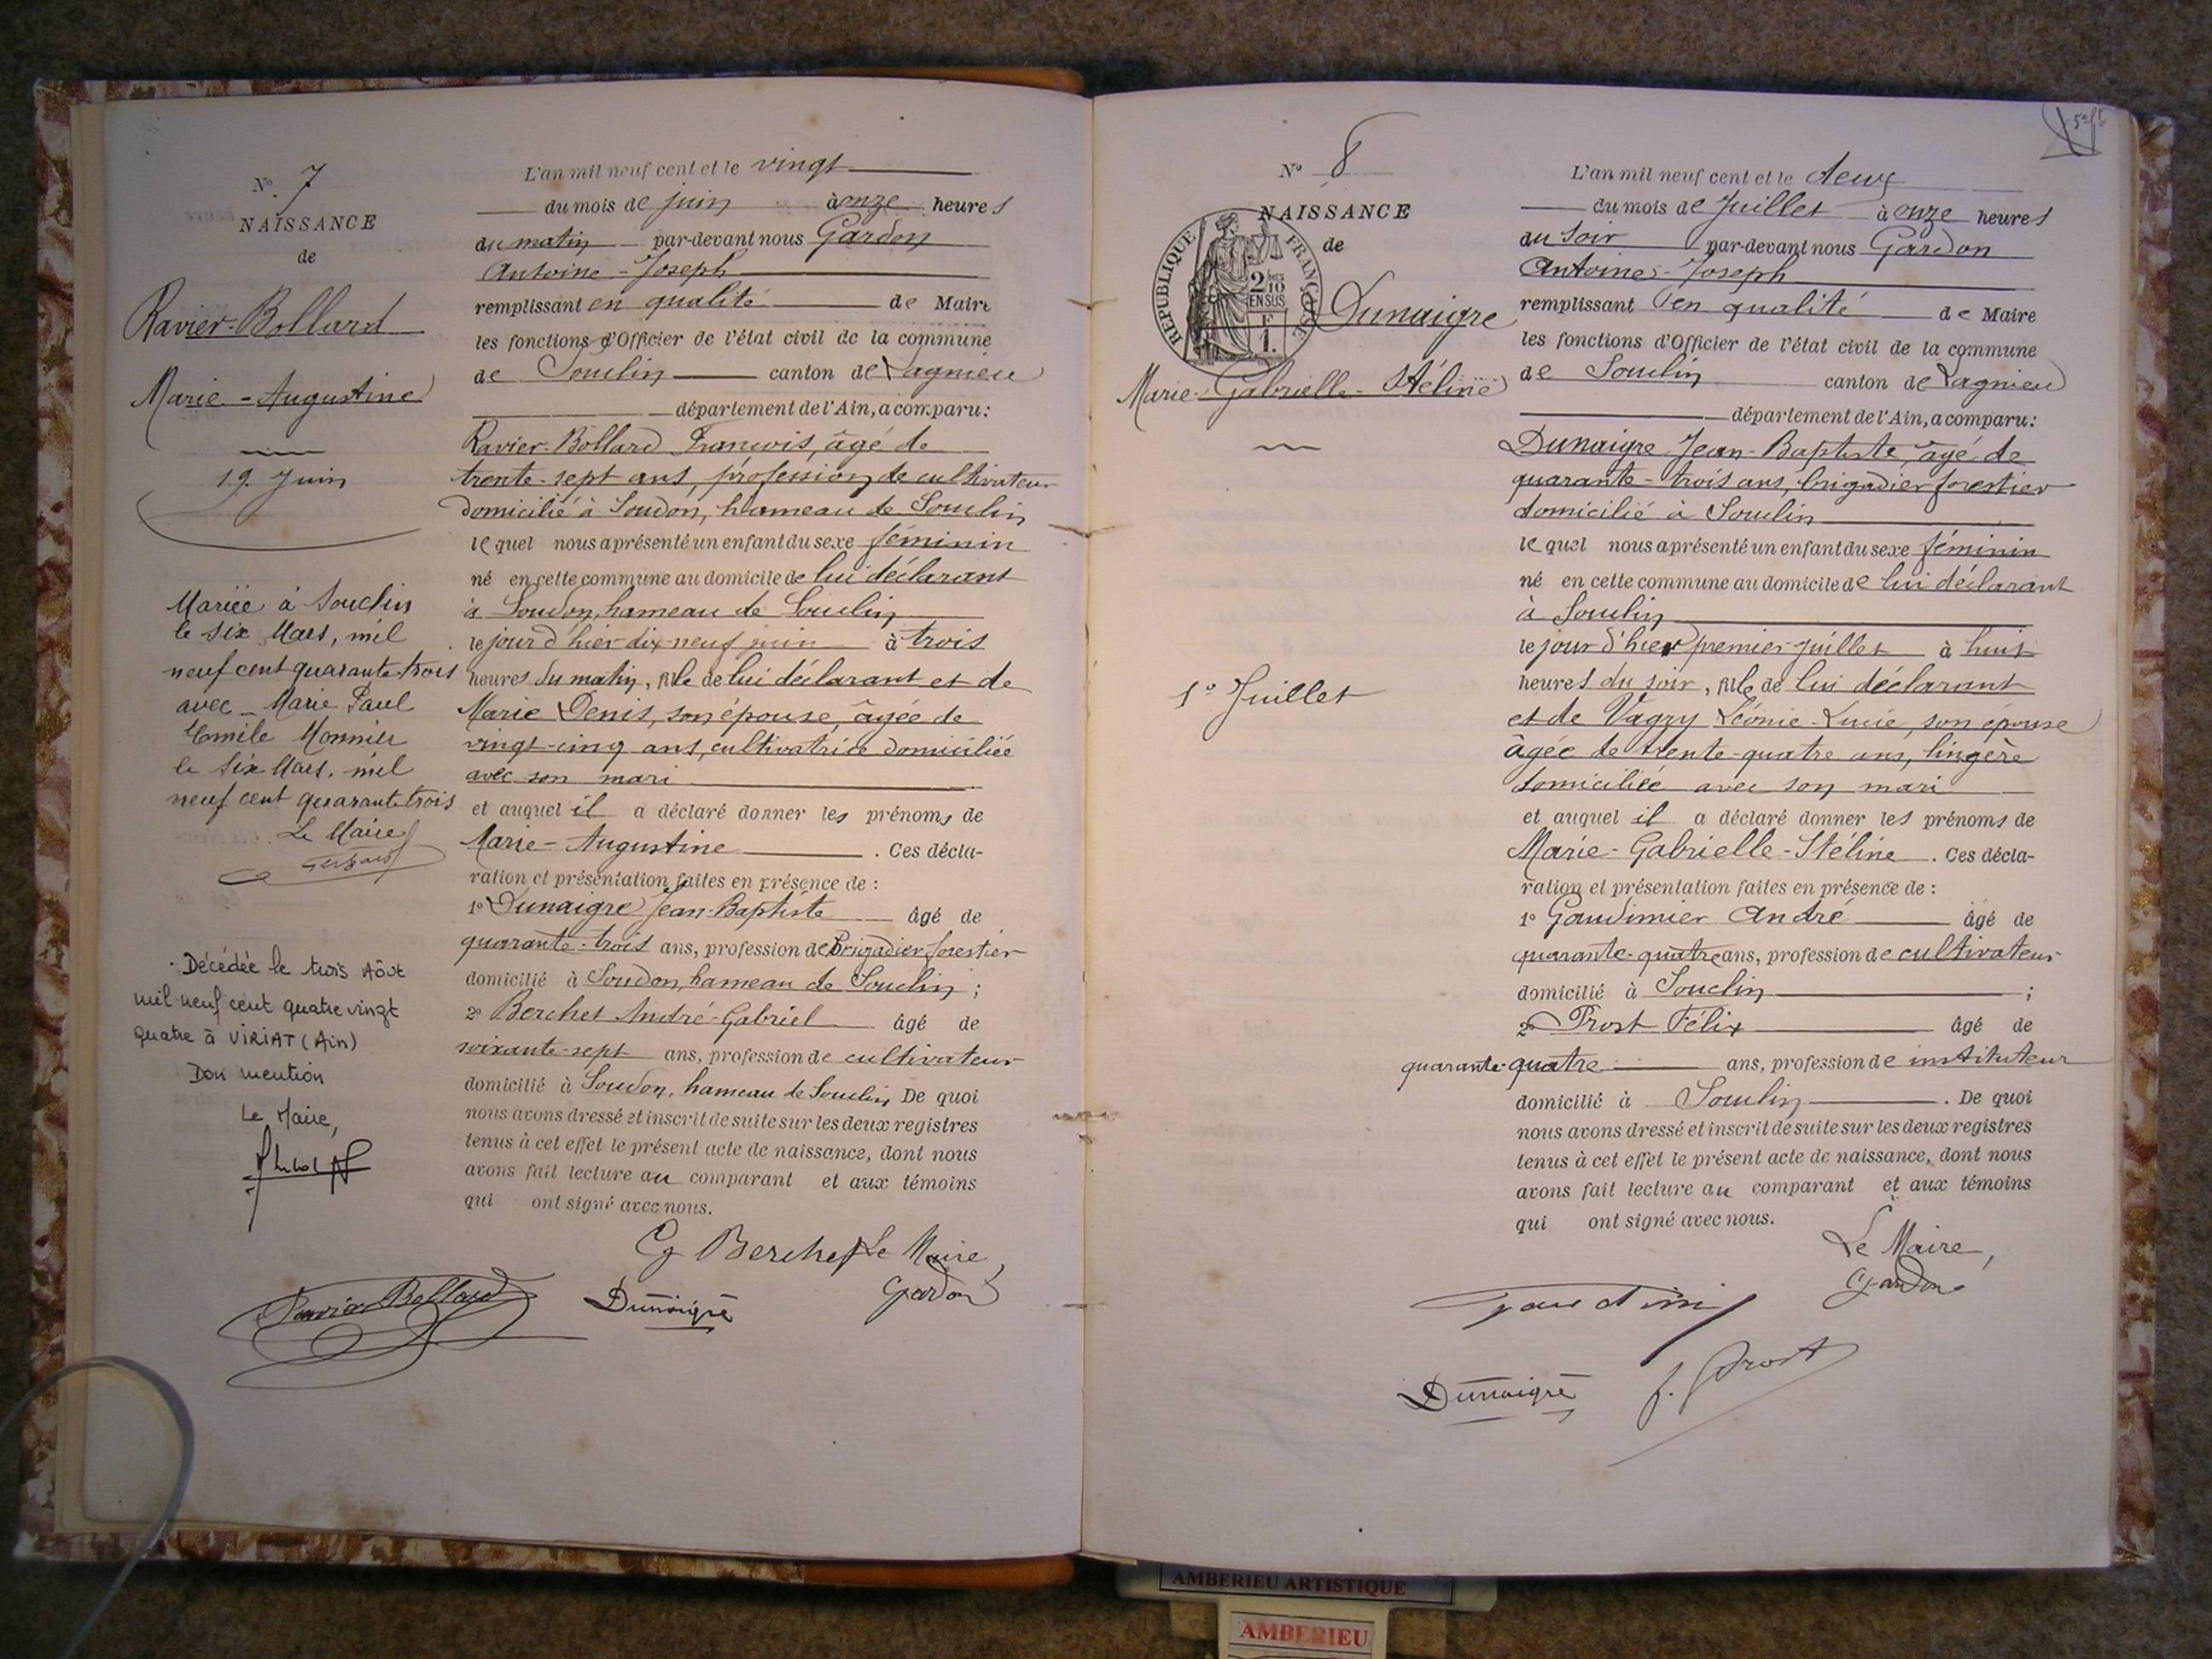 N° 7
NAISSANCE
de
Ravier-Bollard
Marie-Augustine
19 Juin
Mariée à Souclin
le six Mars, mil
neuf cent quarante-trois
avec Marie Paul
Camile Monnier
le six Mars, mil
neuf cent quarante trois
Le Maire
Décédée le trois Août
mil neuf cent quatre vingt
quatre à VIRIAT (Ain)
Don mention
Le Maire,
L'an mil neuf cent et le vingt
du mois de juin à onze heures
du matin par-devant nous Gardon
Antoine-Joseph
remplissant en qualité de Maire
les fonctions d'Officier de l'état civil de la commune
de Souclin canton de Lagnieu
département de l'Ain, a comparu:
Ravier-Bollard François, âgé de
trente-sept ans, profession de cultivateur
domicilié à Soudon, hameau de Souclin
lequel nous a présenté un enfant du sexe féminin
né en cette commune au domicile de lui déclarant
à Soudon, hameau de Souclin
le jour d'hier dix-neuf juin à trois
heures du matin, fille de lui déclarant et de
Marie Denis, son épouse, âgée de
vingt-cinq ans, cultivatrice domiciliée
avec son mari
et auquel il a déclaré donner les prénoms de
Marie-Augustine. Ces décla-
ration et présentation faites en présence de :
1° Dunaigre Jean-Baptiste âgé de
quarante-trois ans, profession de Brigadier forestier
domicilié à Soudon, hameau de Souclin ;
2° Berchet André-Gabriel âgé de
soixante-sept ans, profession de cultivateur
domicilié à Soudon, hameau de Souclin De quoi
nous avons dressé et inscrit de suite sur les deux registres
tenus à cet effet le présent acte de naissance, dont nous
avons fait lecture au comparant et aux témoins
qui ont signé avec nous.
Berchet Le Maire,
Ravier Bollard Dunaigre Gardon
N° 8
NAISSANCE
de
REPUBLIQUE FRANÇAISE
2/10
EN SUS
F
1.
Dunaigre
Marie-Gabrielle-Stéline
1° Juillet
L'an mil neuf cent et le deux
du mois de Juillet à onze heures
du soir par-devant nous Gardon
Antoine-Joseph
remplissant en qualité de Maire
les fonctions d'Officier de l'état civil de la commune
de Souclin canton de Lagnieu
département de l'Ain, a comparu:
Dunaigre Jean-Baptiste âgé de
quarante-trois ans, brigadier forestier
domicilié à Souclin
lequel nous a présenté un enfant du sexe féminin
né en cette commune au domicile de lui déclarant
à Souclin
le jour d'hier premier juillet à huit
heures du soir, fille de lui déclarant
et de Vagry Léonie-Lucie, son épouse
âgée de trente-quatre ans, lingère
domiciliée avec son mari
et auquel il a déclaré donner les prénoms de
Marie-Gabrielle-Stéline. Ces décla-
ration et présentation faites en présence de :
1° Gaudimier André âgé de
quarante-quatre ans, profession de cultivateur
domicilié à Souclin ;
2° Prost Félix âgé de
quarante-quatre ans, profession de instituteur
domicilié à Souclin. De quoi
nous avons dressé et inscrit de suite sur les deux registres
tenus à cet effet le présent acte de naissance, dont nous
avons fait lecture au comparant et aux témoins
qui ont signé avec nous.
Le Maire,
Gardon
Dunaigre f. Prost
AMBERIEU ARTISTIQUE
AMBERIEU